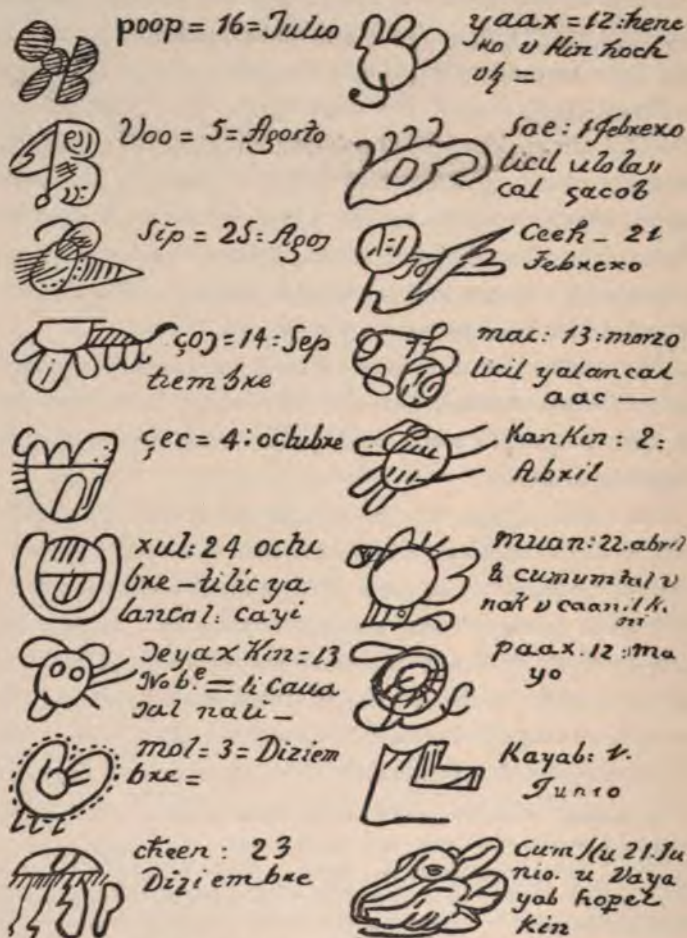 poop = 16 = Julio
Voo = 5 = Agosto
Sip = 25 : Agos
çoj = 14 : Sep
tiem bre
çec = 4 : octubre
xul : 24 octu
bre – tilic ya
lancal : cayi
Jeyax Kin = 13
Nob.e = li caua
jal nali –
mol = 3 = Diziem
bre =
cheen : 23
Diziem bre
yaax = 12 : hene
ro v Kin hoch
=
Sae : 1 Febrero
licil ulolan
cal çacob
Ceeh – 21
Febrero
mac : 13 : marzo
licil yalancal
aac —
KanKin : 2 :
Abril
muan : 22. abril
cumumtal v
nak v caanil k.
paax . 12 : ma
yo
Kayab : 1.
Junio
Cum Ku 21. Ju
nio. u Vaya
yab hopel
kin